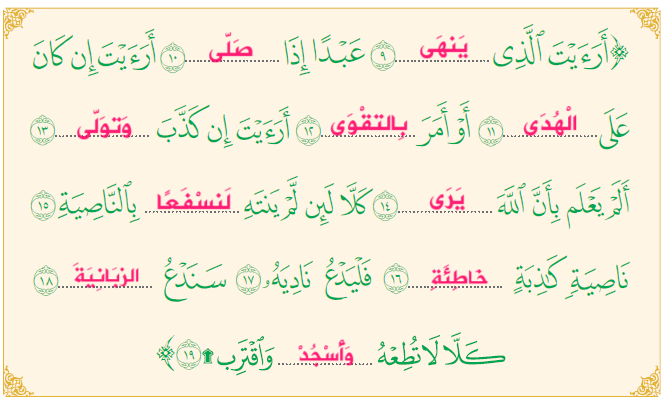 ﴿أَرَءَيْتَ ٱلَّذِى يَنهَى ٩ عَبْدًا إِذَا صَلّى ١٠ أَرَءَيْتَ إِن كَانَ
عَلَى الْهُدَى ١١ أَوْ أَمَرَ بِالتقْوَى ١٢ أَرَءَيْتَ إِن كَذَّبَ وَتَولّى ١٣
أَلَمْ يَعْلَم بِأَنَّ ٱللَّهَ يَرَى ١٤ كَلَّا لَئِن لَّمْ يَنتَهِ لَنسْفَعًا بِٱلنَّاصِيَةِ ١٥
نَاصِيَةٍ كَٰذِبَةٍ خاطِئَةٍ ١٦ فَلْيَدْعُ نَادِيَهُۥ ١٧ سَنَدْعُ الزبَانِيَةَ ١٨
كَلَّا لَا تُطِعْهُ وَأسْجُدْ وَٱقْتَرِب ۩ ١٩﴾